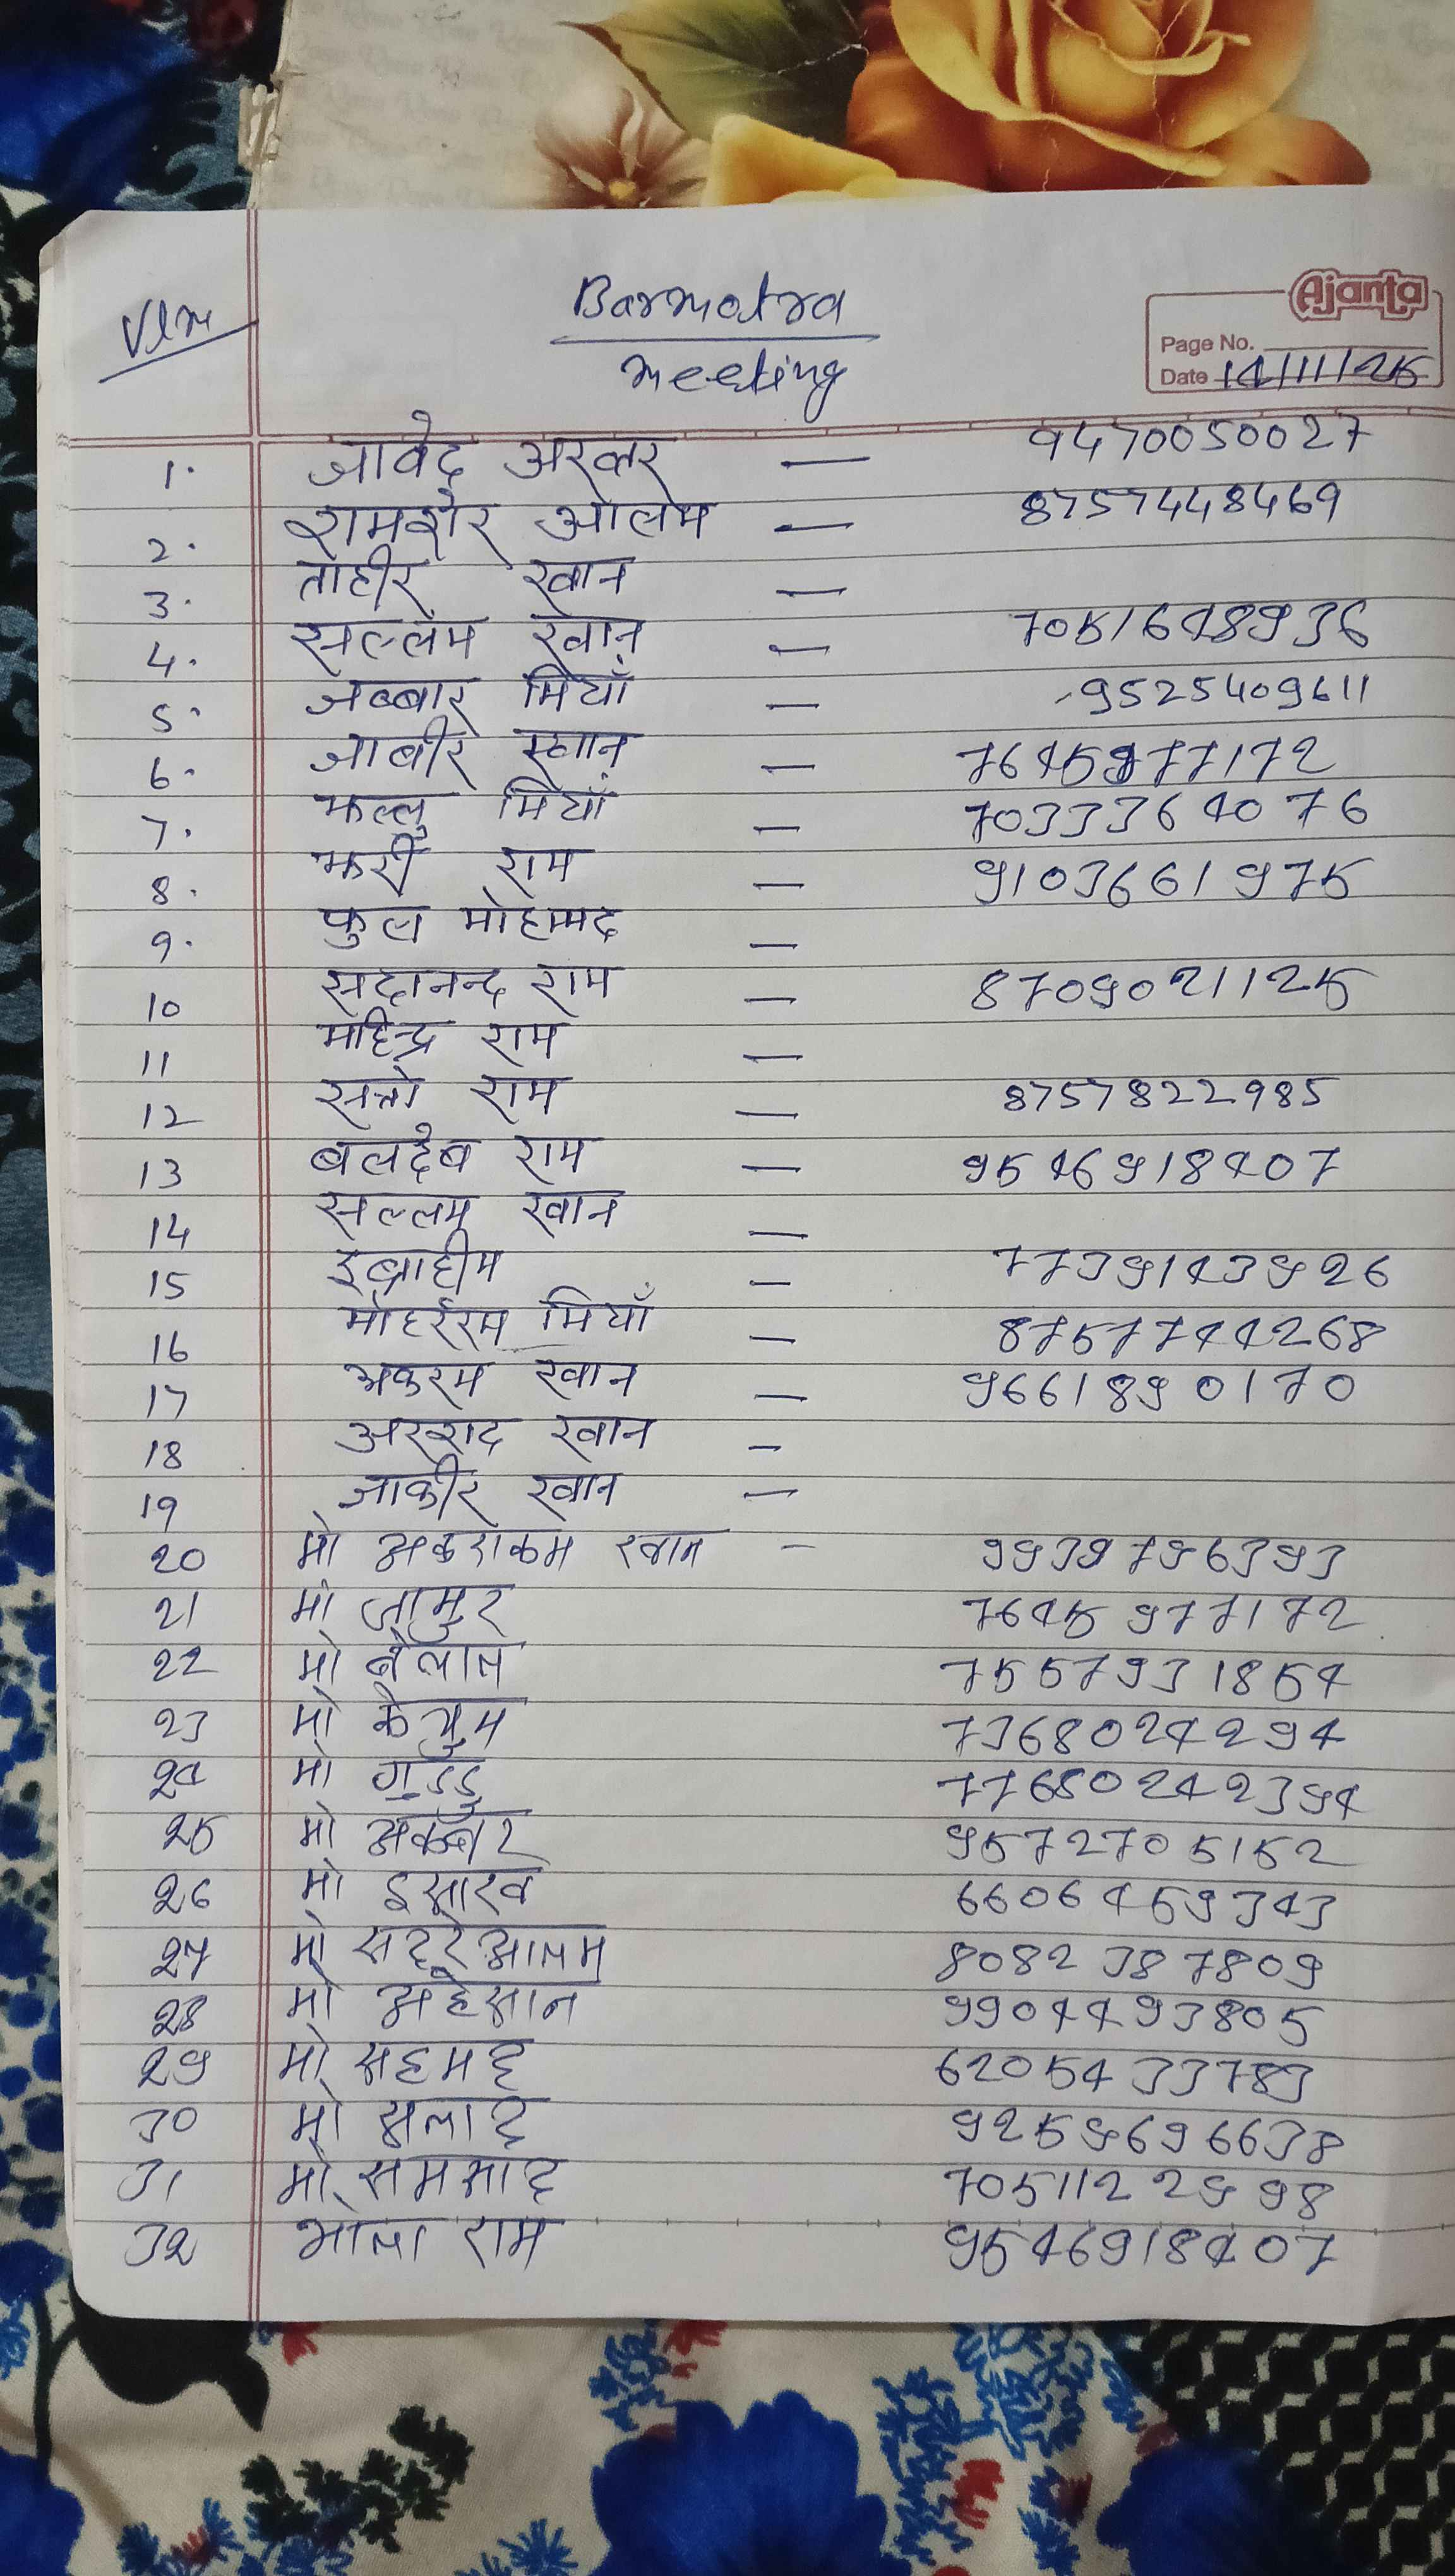 Barmotra
meeting
Ajanta
Page No.
Date 14/11/25
1. जावेद अख्तर — 9470050027
2. शमशेर आलम — 8757448469
3. ताहीर खान —
4. सल्लम खान — 7051648936
5. जब्बार मियाँ — 9525409611
6. जाबीर खान — 7645977172
7. झल्लु मियाँ — 7033364076
8. झरी राम — 9103661975
9. फुल मोहामद —
10 सदानन्द राम — 8709021125
11 महिन्द्र राम —
12 सत्तो राम — 8757822985
13 बलदेब राम — 9546918407
14 सल्लमु खान —
15 इब्राहीम — 7739143926
16 मोहर्रम मियाँ — 8757744268
17 अकरम खान — 9661890170
18 अरशद खान —
19 जाकीर खान —
20 मो खान — 9939796393
21 मो जामुर 7645977172
22 मो बेलाल 7557931854
23 मो केयुम 7368024294
24 मो गुडडु 77680242394
25 मो अकबर 9572705152
26 मो इसाख 6606459343
27 मो सदरे आलम 8082387809
28 मो अहेसान 9904493805
29 मो सहमद 6205433783
30 मो सलाद 9259696638
31 मो समसाद 7051122998
32 भोला राम 9546918407